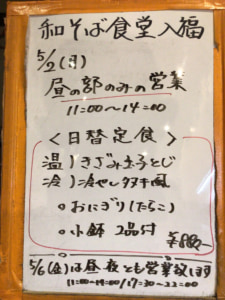 和そば食堂入福
5/2(月)
昼の部のみの営業
11:00～14:00
<日替定食>
温)きざみ玉子とじ
冷)冷やしタヌキ風
。おにぎり(たらこ)
。小鉢 2品付
5/6(金)は昼夜とも営業致します
11:00～14:00/17:30～22:00